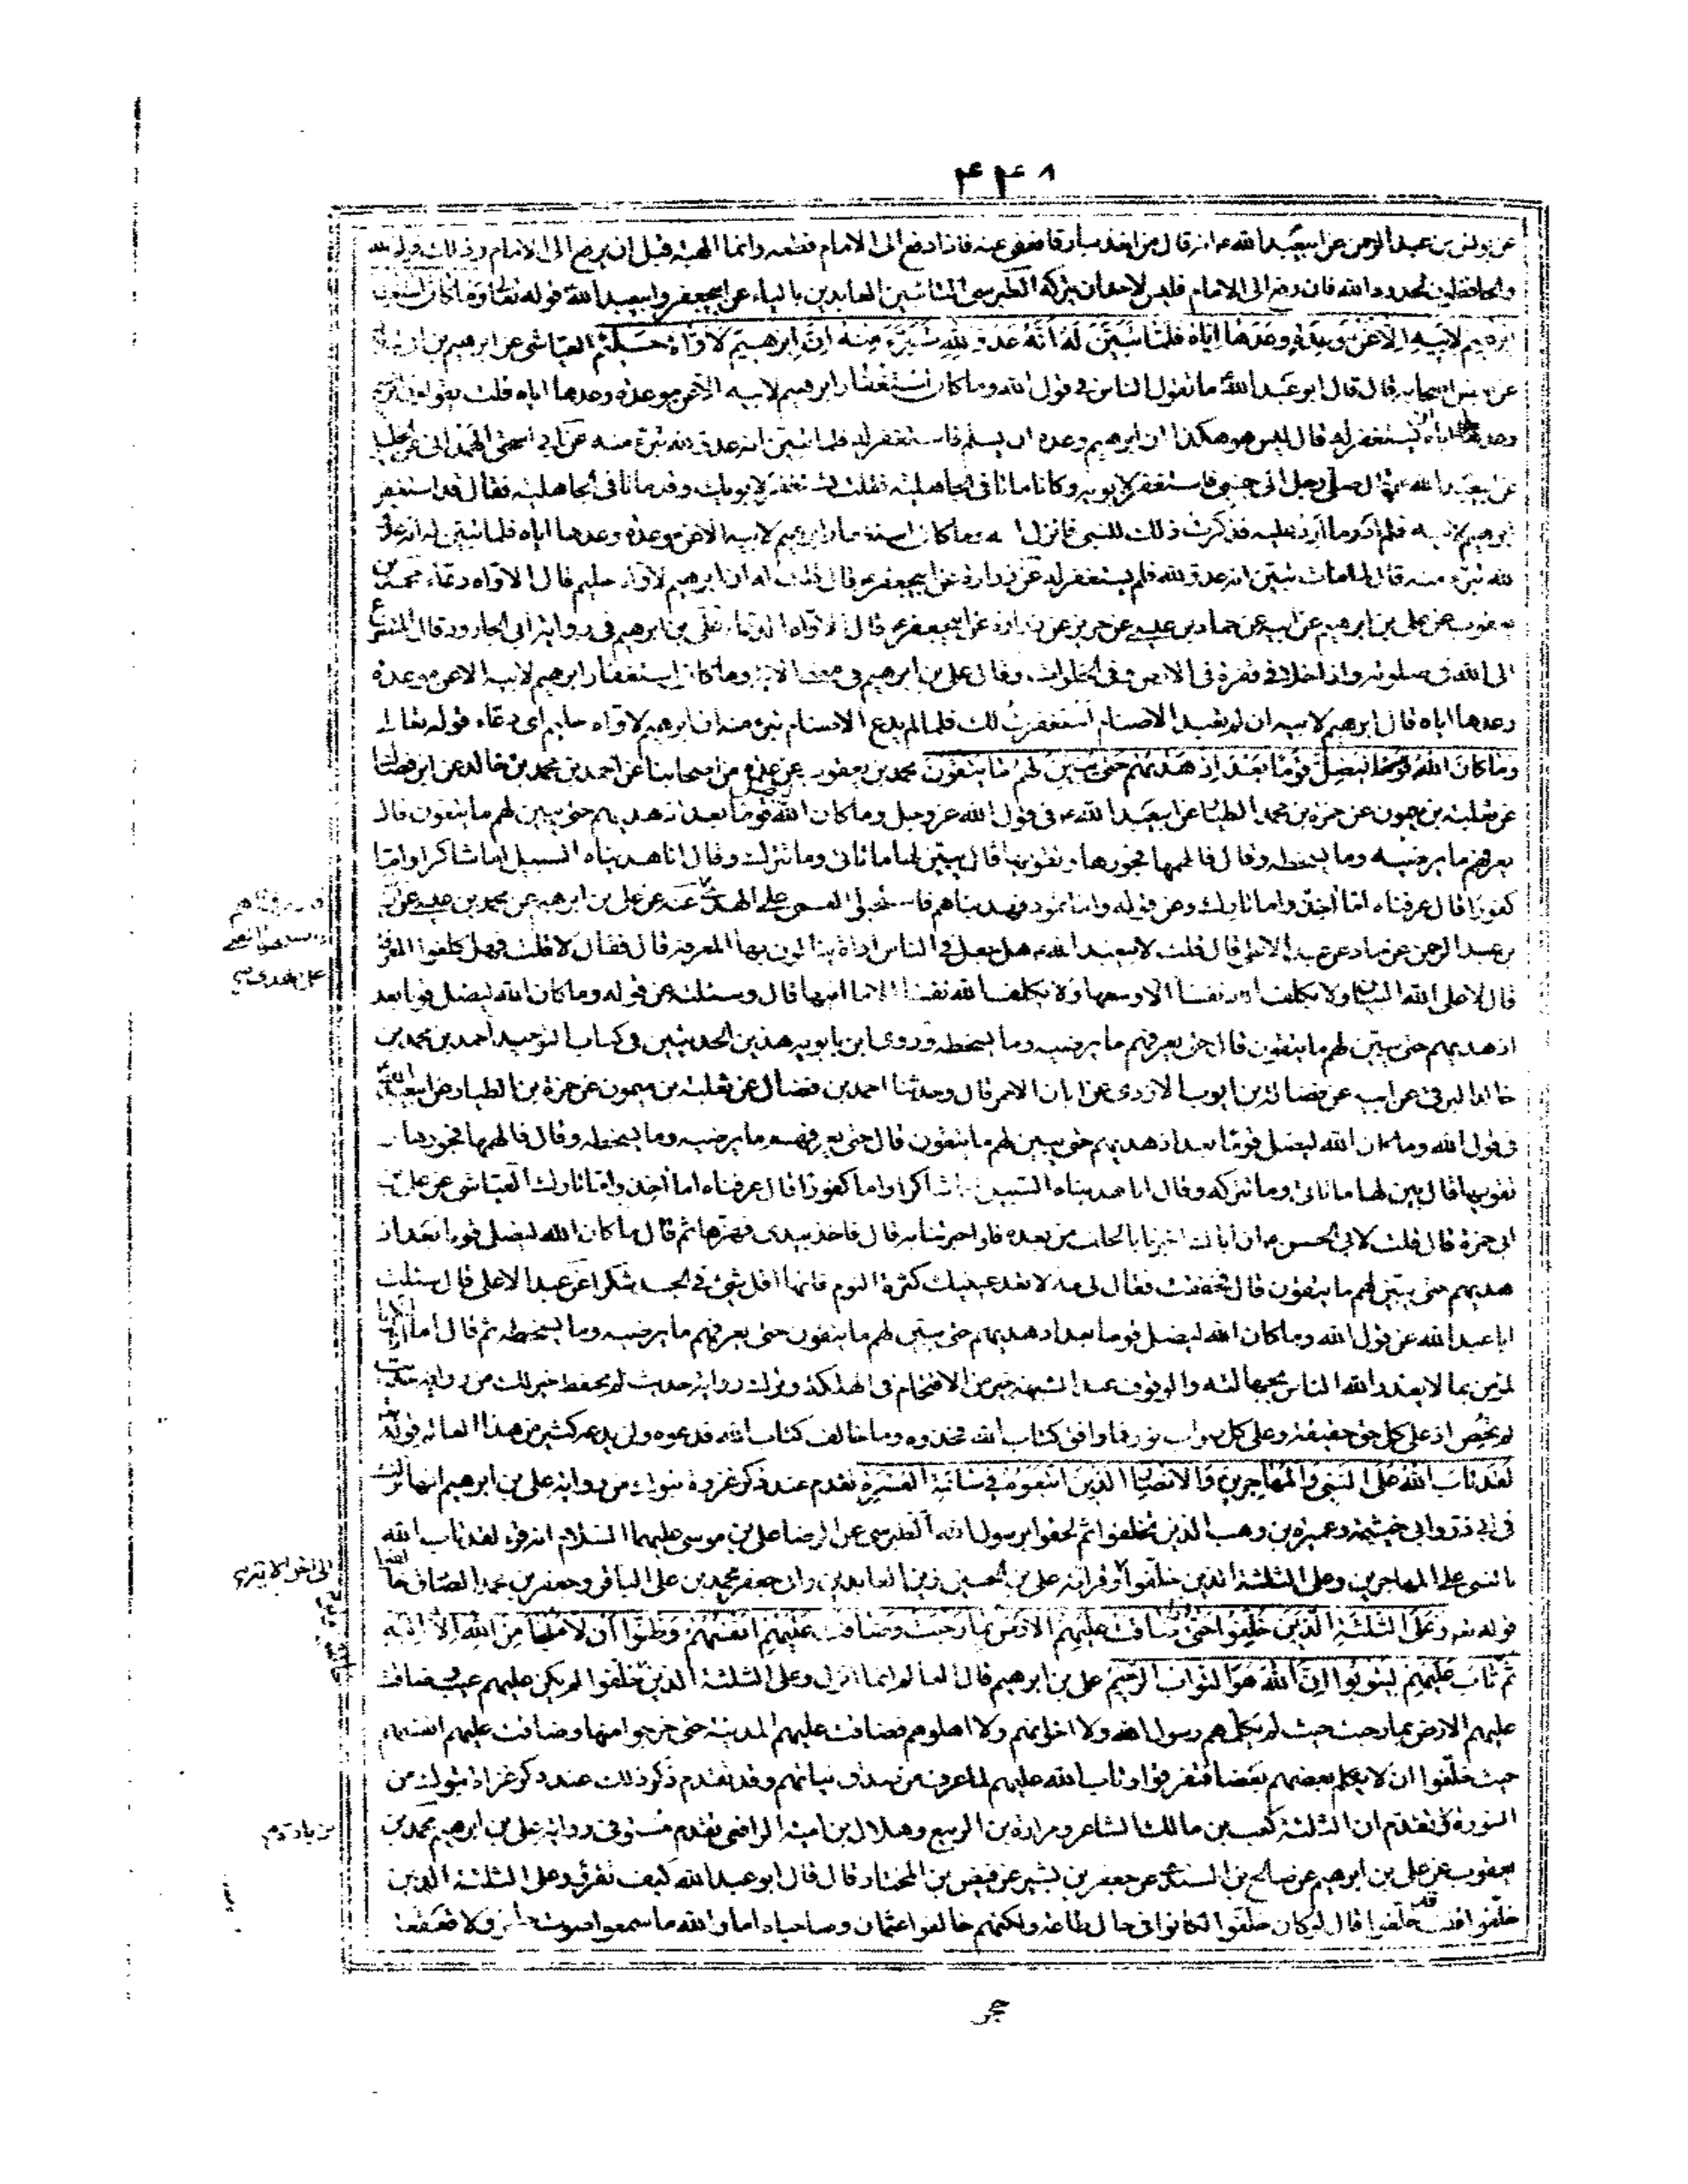 ۴۴۸
عن يونس بن عبد الرحمن عن ابيعبد الله ع انه قال من اخذ سارقا فعفى عنه فاذا رفع الى الامام قطعه وانما الهبة قبل ان يرفع الى الامام وذلك قوله
والحافظون لحدود الله فان رفع الى الامام فليس لاحد ان يتركه الطبرسى التائبين العابدين بالياء عن ابيجعفر وابيعبد الله قوله تعالى وما كان استغفار
ابرهيم لابيه الا عن موعدة وعدها اياه فلما تبين له انه عدو لله تبرء منه ان ابرهيم لاواه حليم العياشى عن ابرهيم بن
عن بعض اصحابه قال قال ابو عبد الله ما تقول الناس فى قول الله وما كان استغفار ابرهيم لابيه الا عن موعدة وعدها اياه قلت يقولون ابرهيم
وعد اباه ليستغفر له قال ليس هو هكذا ان ابرهيم وعده ان يسلم فاستغفر له فلما تبين انه عدو لله تبرء منه عن ابى اسحق الهمدانى عن
عن ابيعبد الله قال صلى رجل الى جنبى فاستغفر لابويه وكانا ماتا فى الجاهلية فقلت تستغفر لابويك وقد ماتا فى الجاهلية فقال قد استغفر
ابرهيم لابيه فلم ادر ما ارد عليه فذكرت ذلك للنبى فانزل الله وما كان استغفار ابرهيم لابيه الا عن موعدة وعدها اياه فلما تبين له انه عدو
لله تبرء منه قال لما مات تبين انه عدو لله فلم يستغفر له عن زرارة عن ابيجعفر ع قال قلت له ان ابرهيم لاواه حليم قال الاواه دعاء محمد بن
يعقوب عن على بن ابرهيم عن ابيه عن حماد بن عيسى عن حريز عن زرارة عن ابيجعفر ع قال الاواه الدعاء على بن ابرهيم فى رواية ابى الجارود قال المتضرع
الى الله فى صلوته واذا خلا فى قفرة فى الارض وفى الخلوات وقال على بن ابرهيم فى معنى الاية وما كان استغفار ابرهيم لابيه الا عن موعدة
وعدها اياه قال ابرهيم لابيه ان لم تعبد الاصنام استغفرت لك فلما لم يدع الاصنام تبرء منه ان ابرهيم لاواه حليم اى دعاء قوله تعالى
وما كان الله ليضل قوما بعد اذ هديهم حتى يبين لهم ما يتقون محمد بن يعقوب عن عدة من اصحابنا عن احمد بن محمد بن خالد عن ابن فضال
عن ثعلبة بن ميمون عن حمزة بن محمد الطيار عن ابيعبد الله ع فى قول الله عز وجل وما كان الله قوما بعد اذ هديهم حتى يبين لهم ما يتقون قال
يعرفهم ما يرضيه وما يسخطه وقال فالهمها فجورها وتقويها قال يبين لها ما تاتى وما تترك وقال انا هديناه السبيل اما شاكرا واما
كفورا قال عرفناه اما اخذ واما تارك وعن قوله واما ثمود فهديناهم فاستحبوا العمى على الهدى عنه عن على بن ابرهيم عن محمد بن عيسى عن يونس
بن عبد الرحمن عن حماد عن عبد الاعلى قال قلت لابيعبد الله ع هل جعل فى الناس اداة ينالون بها المعرفة قال فقال لا قلت فهل كلفوا المعرفة
قال لا على الله البيان ولا يكلف الله نفسا الا وسعها ولا يكلف الله نفسا الا ما اتيها قال وسئلته عن قوله وما كان الله ليضل قوما بعد
اذ هديهم حتى يبين لهم ما يتقون قال حتى يعرفهم ما يرضيه وما يسخطه وروى ابن بابويه هذين الحديثين فى كتاب التوحيد احمد بن محمد بن
خالد البرقى عن ابيه عن فضالة بن ايوب الازدى عن ابان الاحمر قال وحدثنا احمد بن فضال عن ثعلبة بن ميمون عن حمزة بن الطيار عن ابيعبد الله
فى قول الله وما كان الله ليضل قوما بعد اذ هديهم حتى يبين لهم ما يتقون قال حتى يعرفهم ما يرضيه وما يسخطه وقال فالهمها فجورها و
تقويها قال بين لها ما تاتى وما تتركه وقال انا هديناه السبيل اما شاكرا واما كفورا قال عرفناه اما اخذ واما تارك العياشى عن على بن
ابى حمزة قال قلت لابى الحسن ع ان اباك اخبرنا بالخلف من بعده فلو اخبرتنا به قال فاخذ بيدى فهزها ثم قال ما كان الله ليضل قوما بعد اذ
هديهم حتى يبين لهم ما يتقون قال فخفقت فقال لى مه لا تعود عينيك كثرة النوم فانها اقل شئ فى الجسد شكرا عن عبد الاعلى قال سئلت
ابا عبد الله عن قول الله وما كان الله ليضل قوما بعد اذ هديهم حتى يبين لهم ما يتقون حتى يعرفهم ما يرضيه وما يسخطه ثم قال اما
بما لا يعذر الله الناس بجهالته والوقوف عند الشبهة خير من الاقتحام فى الهلكة وترك رواية حديث لم يحفظ خير لك من رواية حديث
لم يحص ان على كل حق حقيقة وعلى كل صواب نور فما وافق كتاب الله فخذوه وما خالف كتاب الله فدعوه ولن يدعه كثير من هذا العالم قوله
لقد تاب الله على النبى والمهاجرين والانصار الذين اتبعوه فى ساعة العسرة تقدم عند ذكر غزوة تبوك من رواية على بن ابرهيم انها نزلت
فى ابى ذر وابى خيثمة وعميرة بن وهب الذين تخلفوا ثم لحقوا برسول الله الطبرسى عن الرضا على بن موسى عليهما السلام انه قرء لقد تاب الله
بالنبى على المهاجرين وعلى الثلثة الذين خلفوا وقراءة على بن الحسين زين العابدين وابى جعفر محمد بن على الباقر وجعفر بن محمد الصادق
قوله تعالى وعلى الثلثة الذين خلفوا حتى ضاقت عليهم الارض بما رحبت وضاقت عليهم انفسهم وظنوا ان لا ملجا من الله الا اليه
ثم تاب عليهم ليتوبوا ان الله هو التواب الرحيم على بن ابرهيم قال العالم انما انزل وعلى الثلثة الذين خالفوا لم يكن عليهم عيب ضاقت
عليهم الارض بما رحبت حيث لم يكلمهم رسول الله ولا اخوانهم ولا اهلوهم فضاقت عليهم المدينة حتى خرجوا منها وضاقت عليهم انفسهم
حيث حلفوا ان لا يكلم بعضهم بعضا فتفرقوا وتاب الله عليهم لما عرف من صدق نياتهم وقد تقدم ذكر ذلك عند ذكر غزاة تبوك من
السورة تقدم ان الثلثة كعب بن مالك الشاعر ومرارة بن الربيع وهلال بن امية الرافعى تقدم مستوفى رواية على بن ابرهيم محمد بن
يعقوب عن على بن ابرهيم عن صالح بن السندى عن جعفر بن بشير عن فيض بن المختار قال قال ابو عبد الله كيف تقرء وعلى الثلثة الذين
خلفوا قلت خلفوا قال لو كان خلفوا لكانوا فى حال طاعة ولكنهم خالفوا عثمان وصاحباه اما والله ما سمعوا صوت حافر ولا قعقعة